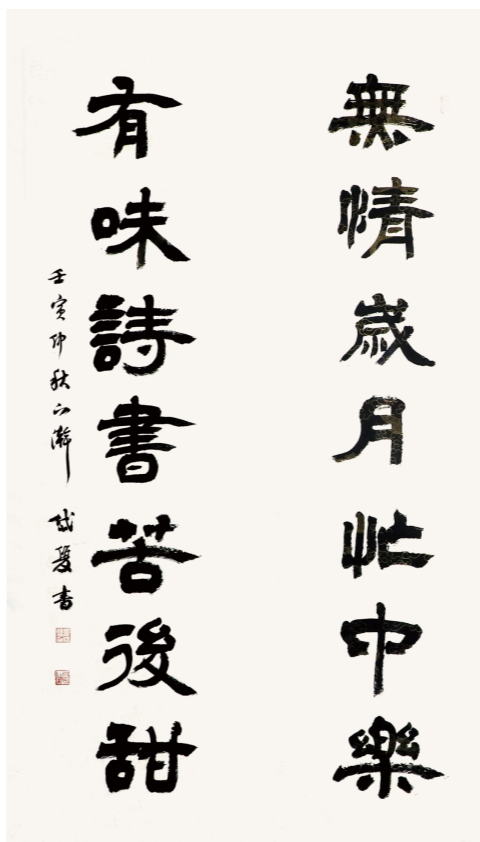 無情歲月忙中樂
有味詩書苦後甜
壬寅仲秋下瀚
書